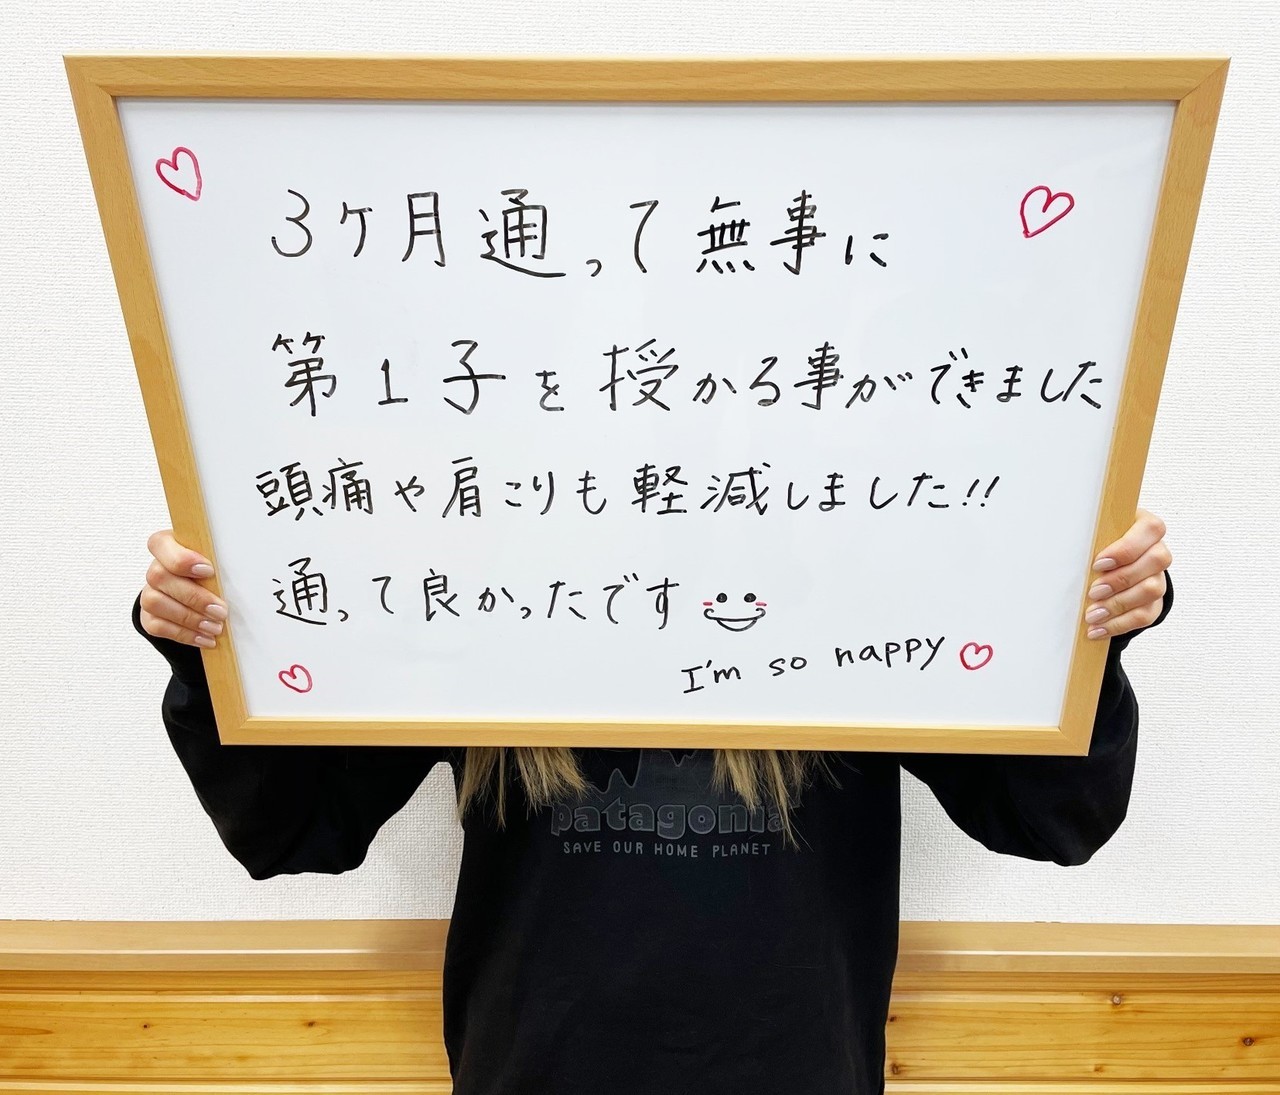 3ケ月通って無事に
第1子を授かる事ができました
頭痛や肩こりも軽減しました!!
通って良かったです
I'm so happy
patagonia
SAVE OUR HOME PLANET